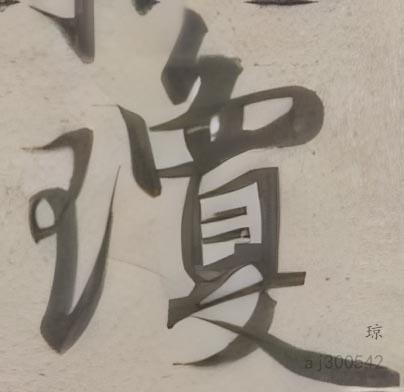 瓊
琼
aj300542